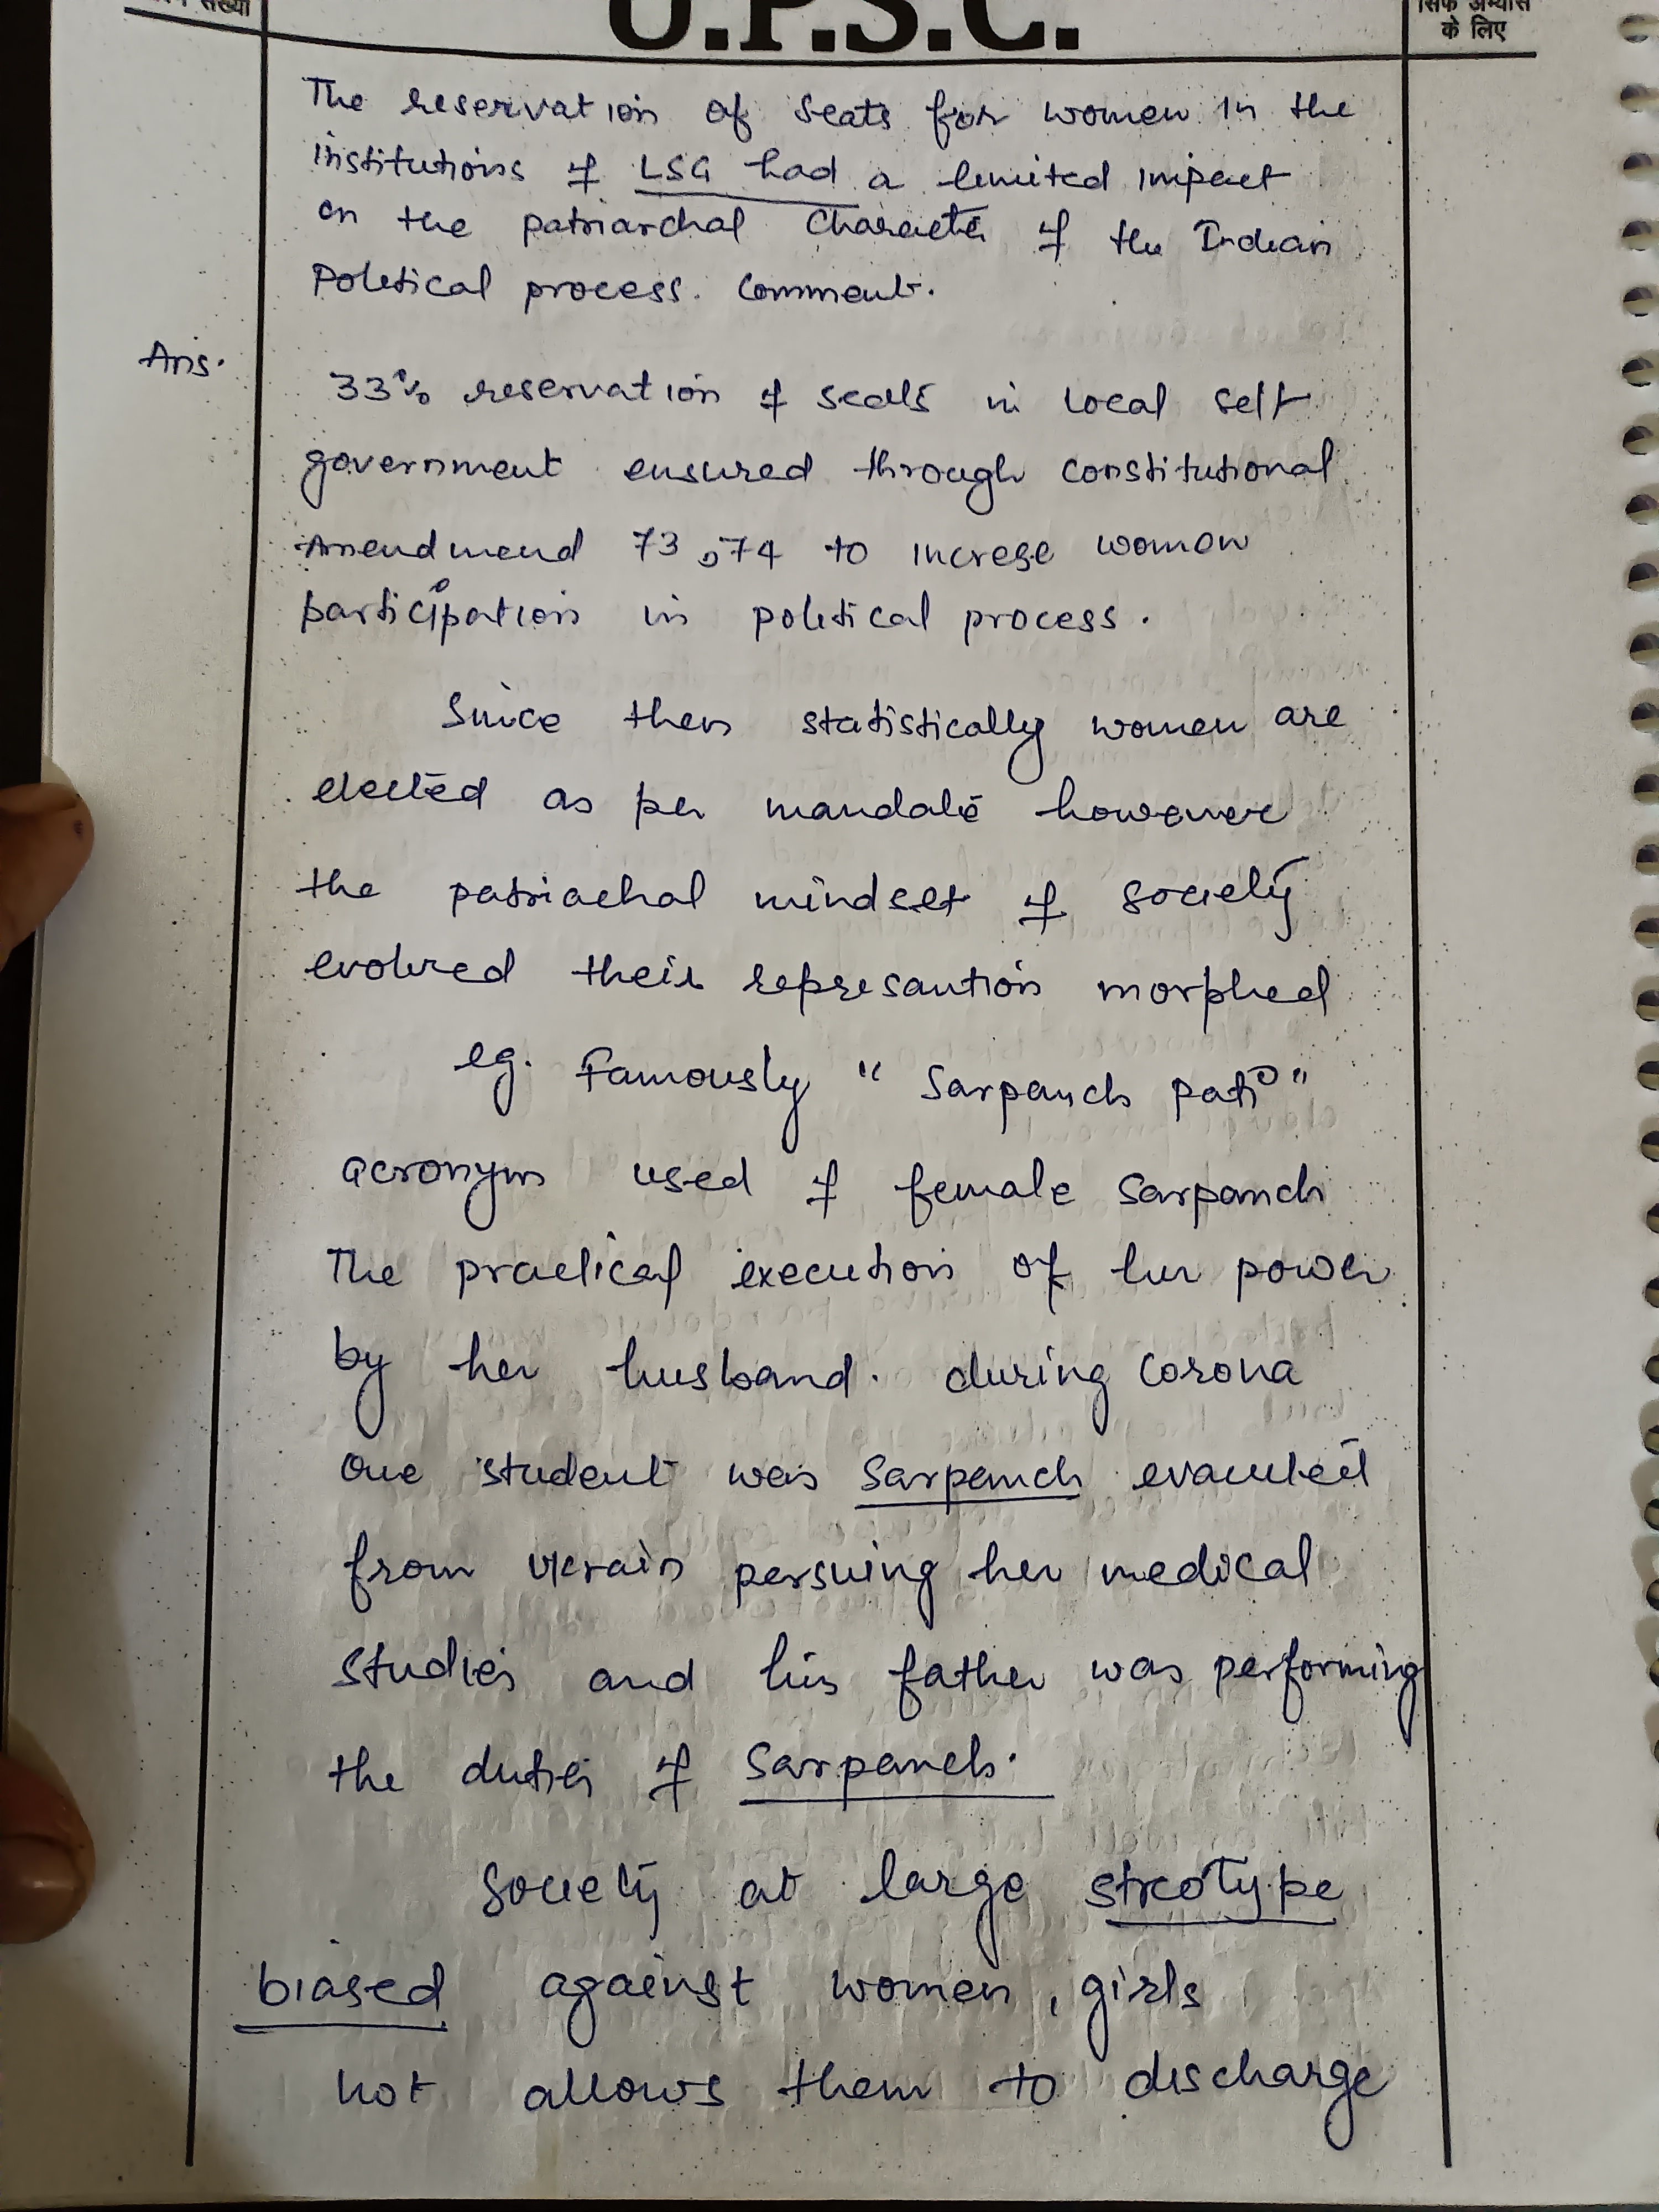 संख्या
U.P.S.C.
सिर्फ अभ्यास
के लिए
The reservation of seats for women in the
institutions of LSG had a limited impact
on the patriarchal character of the Indian
Political process. Comment.
Ans.
33% reservation of seats in local self
government ensured through constitutional
Amendmend 73, 74 to increse women
participation in political process.
Since then statistically women are
elected as per mandate however
the patriachal mindset of society
evolved their represantion morphed
eg. Famously "Sarpanch pati"
acronym used of female sarpanch
The practical execution of her power
by her husband. during corona
one student was Sarpanch evacuted
from Ukrain persuing her medical
studies and his father was performing
the duties of Sarpanch.
Society at large streotype
biased against women, girls
not allows them to discharge